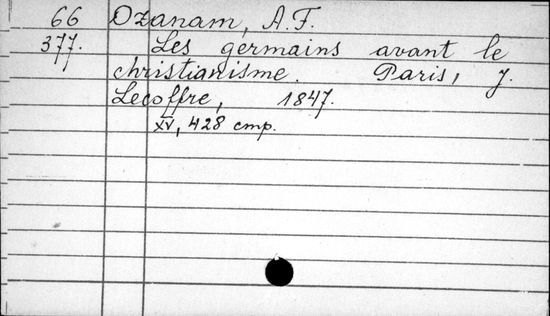 66 Ozanam, A.F.
377. Les germains avant le
christianisme. Paris, J.
Lecoffre, 1847.
XV, 428 стр.